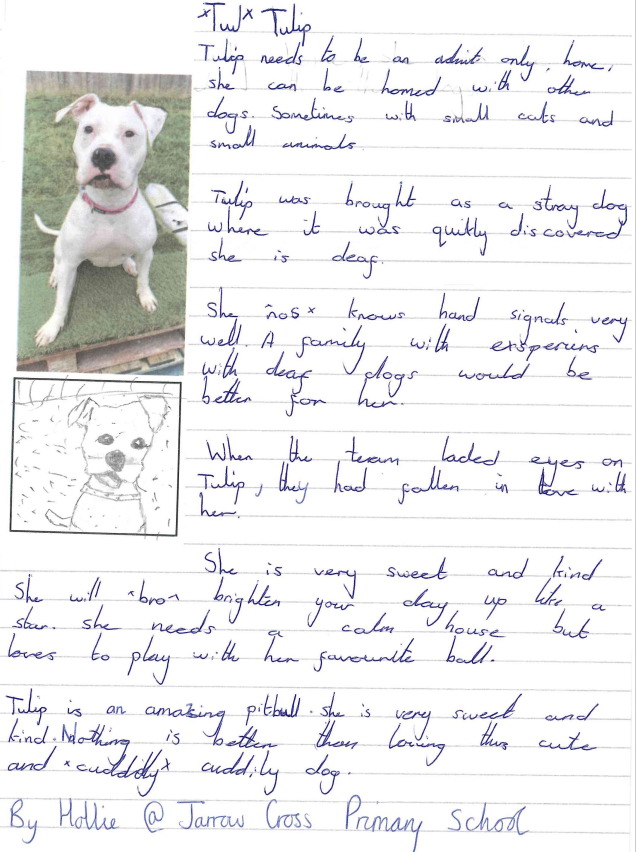 *Tul* Tulip
Tulip needs to be an adult only, home,
she can be homed with other
dogs. Sometimes with small cats and
small animals.
Tulip was brought as a stray dog
where it was quitly discovered
she is deaf.
She knows hand signals very
well. A family with exsperiins
with deaf dogs would be
better for her.
When the team laded eyes on
Tulip, they had fallen in love with
her.
She is very sweet and kind
She will *bro* brighten your day up like a
star. she needs a calm house but
loves to play with her favourite ball.
Tulip is an amazing pitbull. she is very sweet and
kind. Nothing is better than loving this cute
and *cuddily* cuddily dog.
By Hollie @ Jarrow Cross Primary School